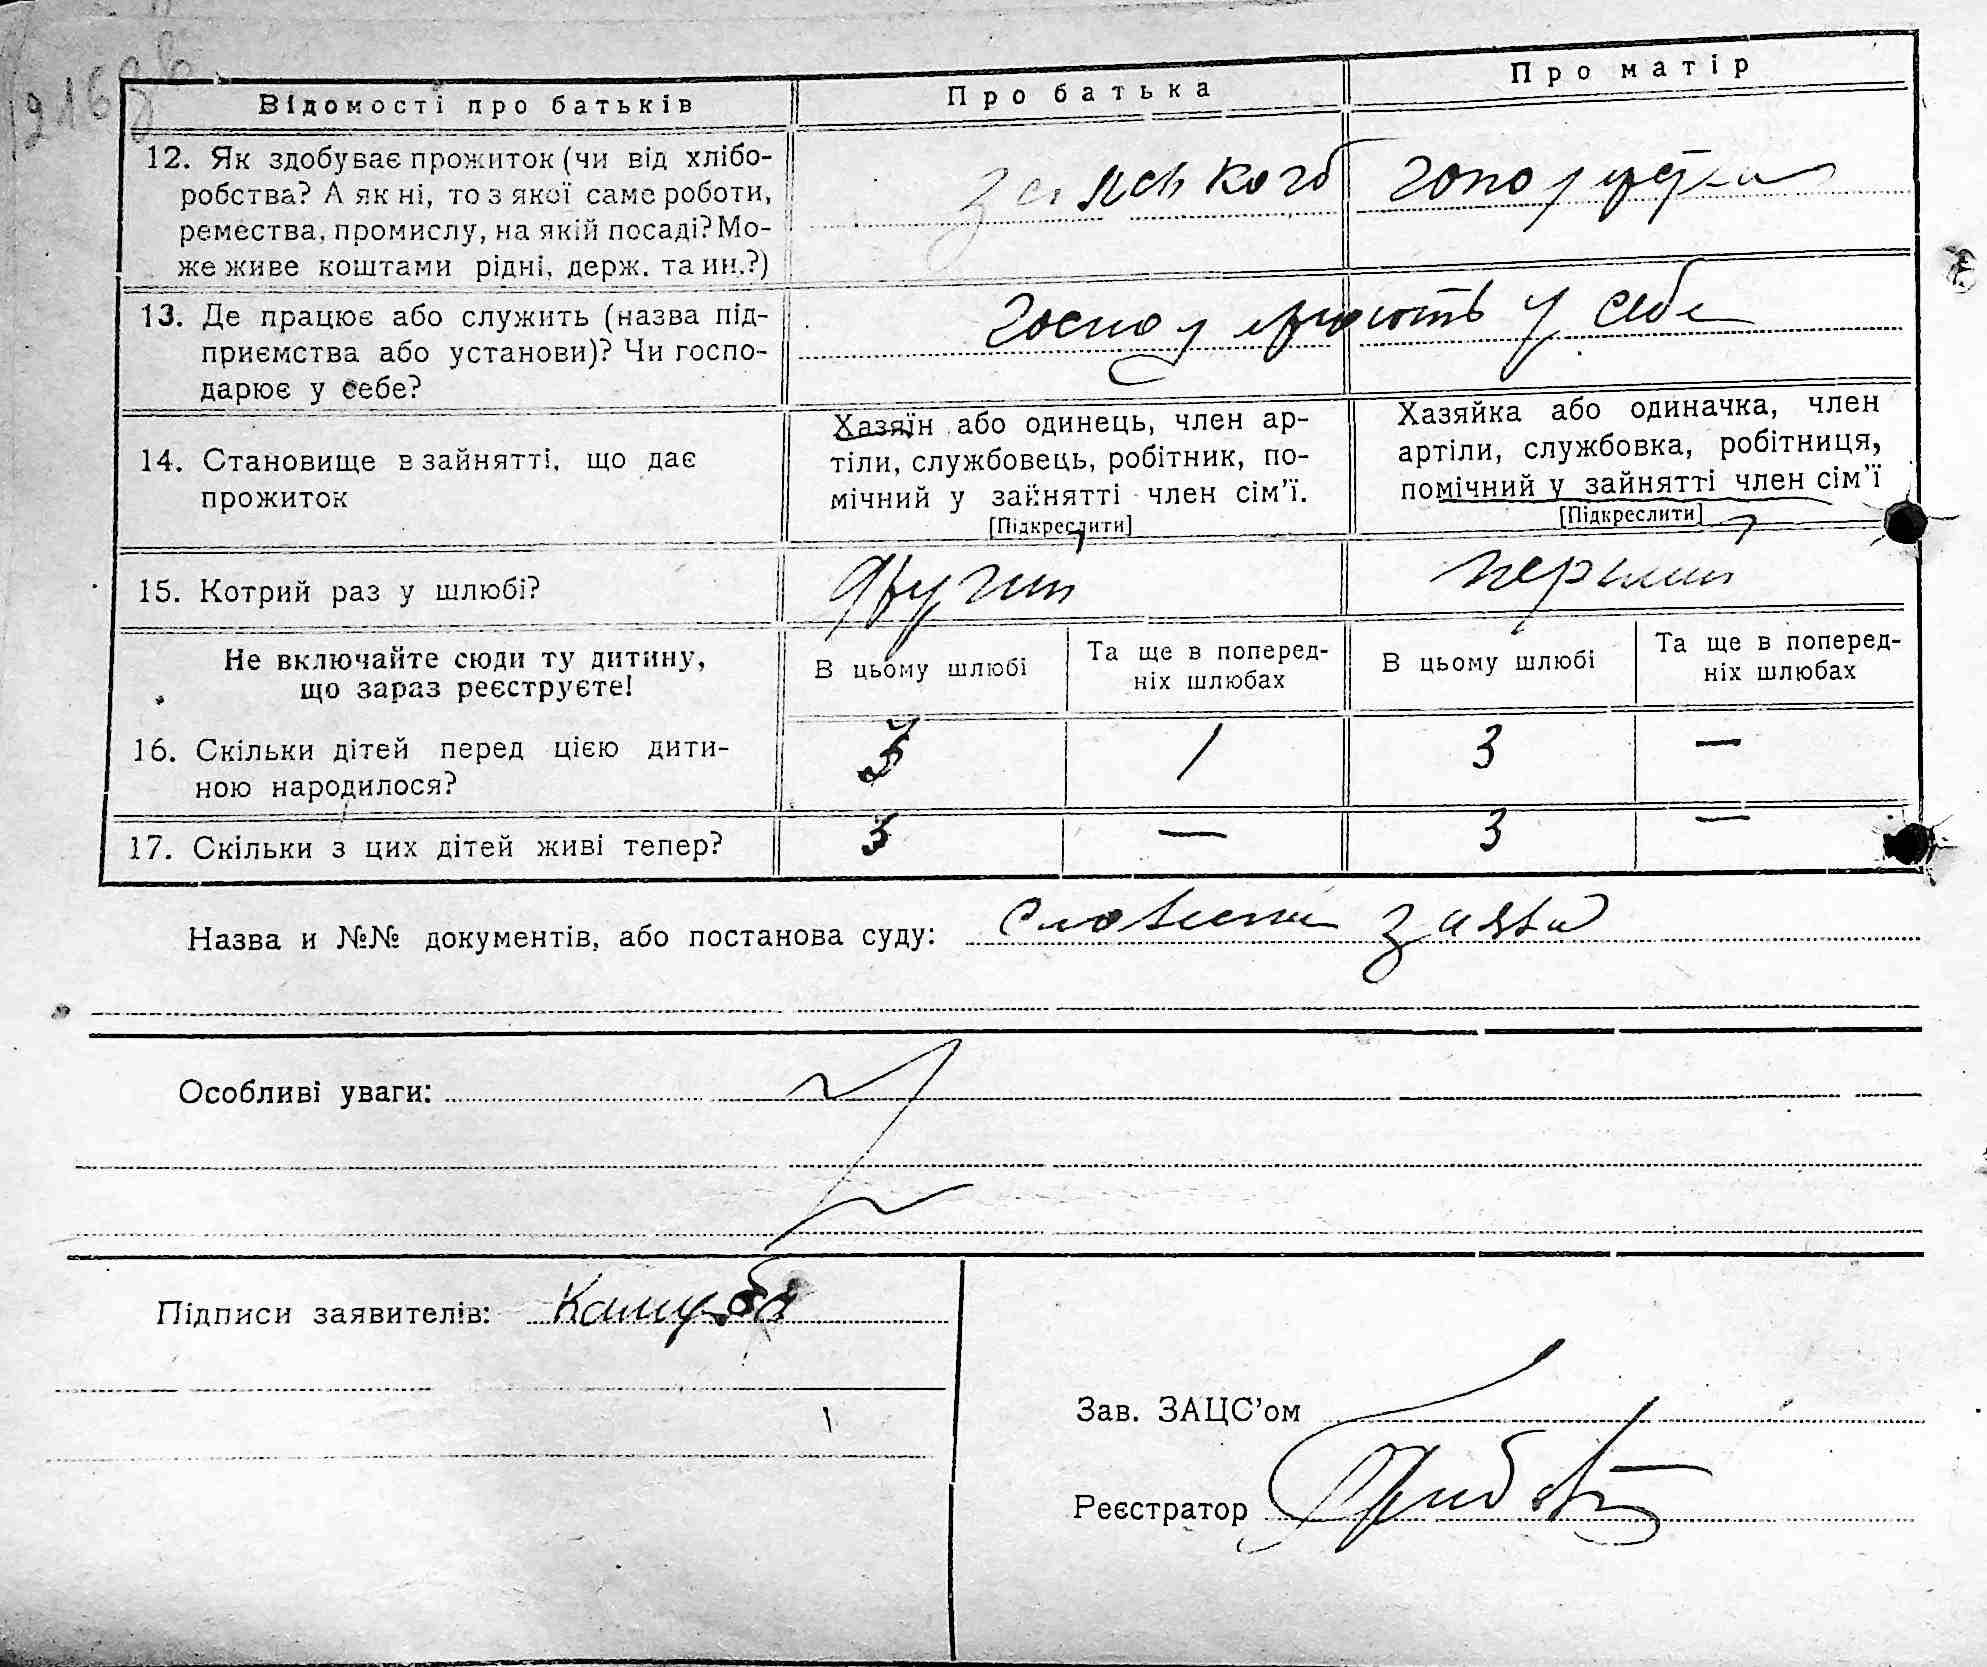 Відомості про батьків
Про батька
Про матір
12. Як здобуває прожиток (чи від хлібо-
робства? А як ні, то з якої саме роботи,
ремества, промислу, на якій посаді? Мо-
же живе коштами рідні, держ. та ин.?)
13. Де працює або служить (назва під-
приємства або установи)? Чи госпо-
дарює у себе?
у себе
14. Становище в зайнятті, що дає
прожиток
Хазяїн або одинець, член ар-
тіли, службовець, робітник, по-
мічний у зайнятті член сім'ї.
[Підкреслити]
Хазяйка або одиначка, член
артіли, службовка, робітниця,
помічний у зайнятті член сім'ї
[Підкреслити]
15. Котрий раз у шлюбі?
другий
перший
Не включайте сюди ту дитину,
що зараз реєструєте!
В цьому шлюбі
Та ще в поперед-
ніх шлюбах
В цьому шлюбі
Та ще в поперед-
ніх шлюбах
16. Скільки дітей перед цією дити-
ною народилося?
3
1
3
—
17. Скільки з цих дітей живі тепер?
3
—
3
—
Назва и №№ документів, або постанова суду: словесна заява
Особливі уваги:
Підписи заявителів: Кашуба
Зав. ЗАЦС'ом
Реєстратор